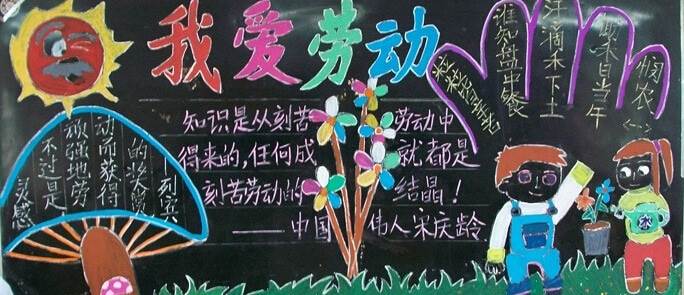 我爱劳动
知识是从刻苦劳动中
得来的,任何成就都是
刻苦劳动的结晶!
——中国伟人宋庆龄
灵感
不过是
顽强地劳
动而获得
的奖赏
悯农
锄禾日当午
汗滴禾下土
谁知盘中餐
粒粒皆辛苦